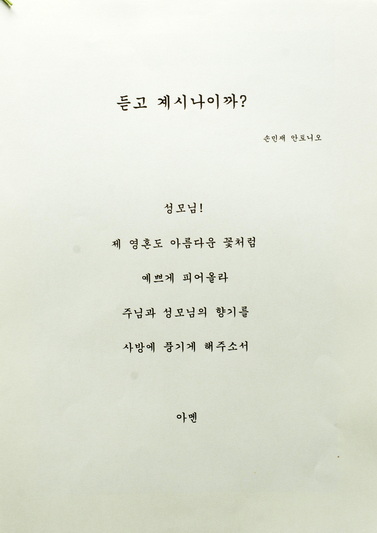 듣고 계시나이까?
손민재 안토니오
성모님!
제 영혼도 아름다운 꽃처럼
예쁘게 피어올라
주님과 성모님의 향기를
사방에 풍기게 해주소서
아멘